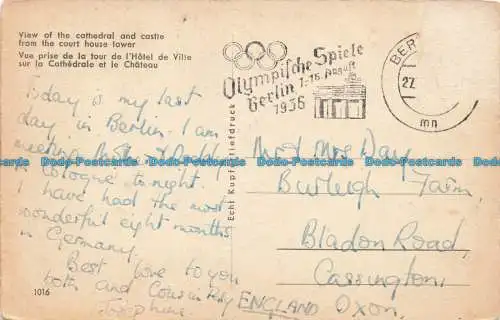 View of the cathedral and castle
from the court house tower
Vue prise de la tour de l'Hôtel de Ville
sur la Cathédrale et le Château
Today is my last
day in Berlin. I am
meeting
in Cologne to-night.
I have had the most
wonderful eight months
in Germany.
Best love to you
both and Cousin
Josephine.
1016
Echt Kupfertiefdruck
Olympische Spiele
Berlin 1.-16. August
1936
BER
27.
mn
Mr & Mrs Day
Burleigh Farm,
Bladon Road,
Cassington,
ENGLAND Oxon.
Postcards Data-Postcards Data-Postcards Data-Postcards Data-Postcards